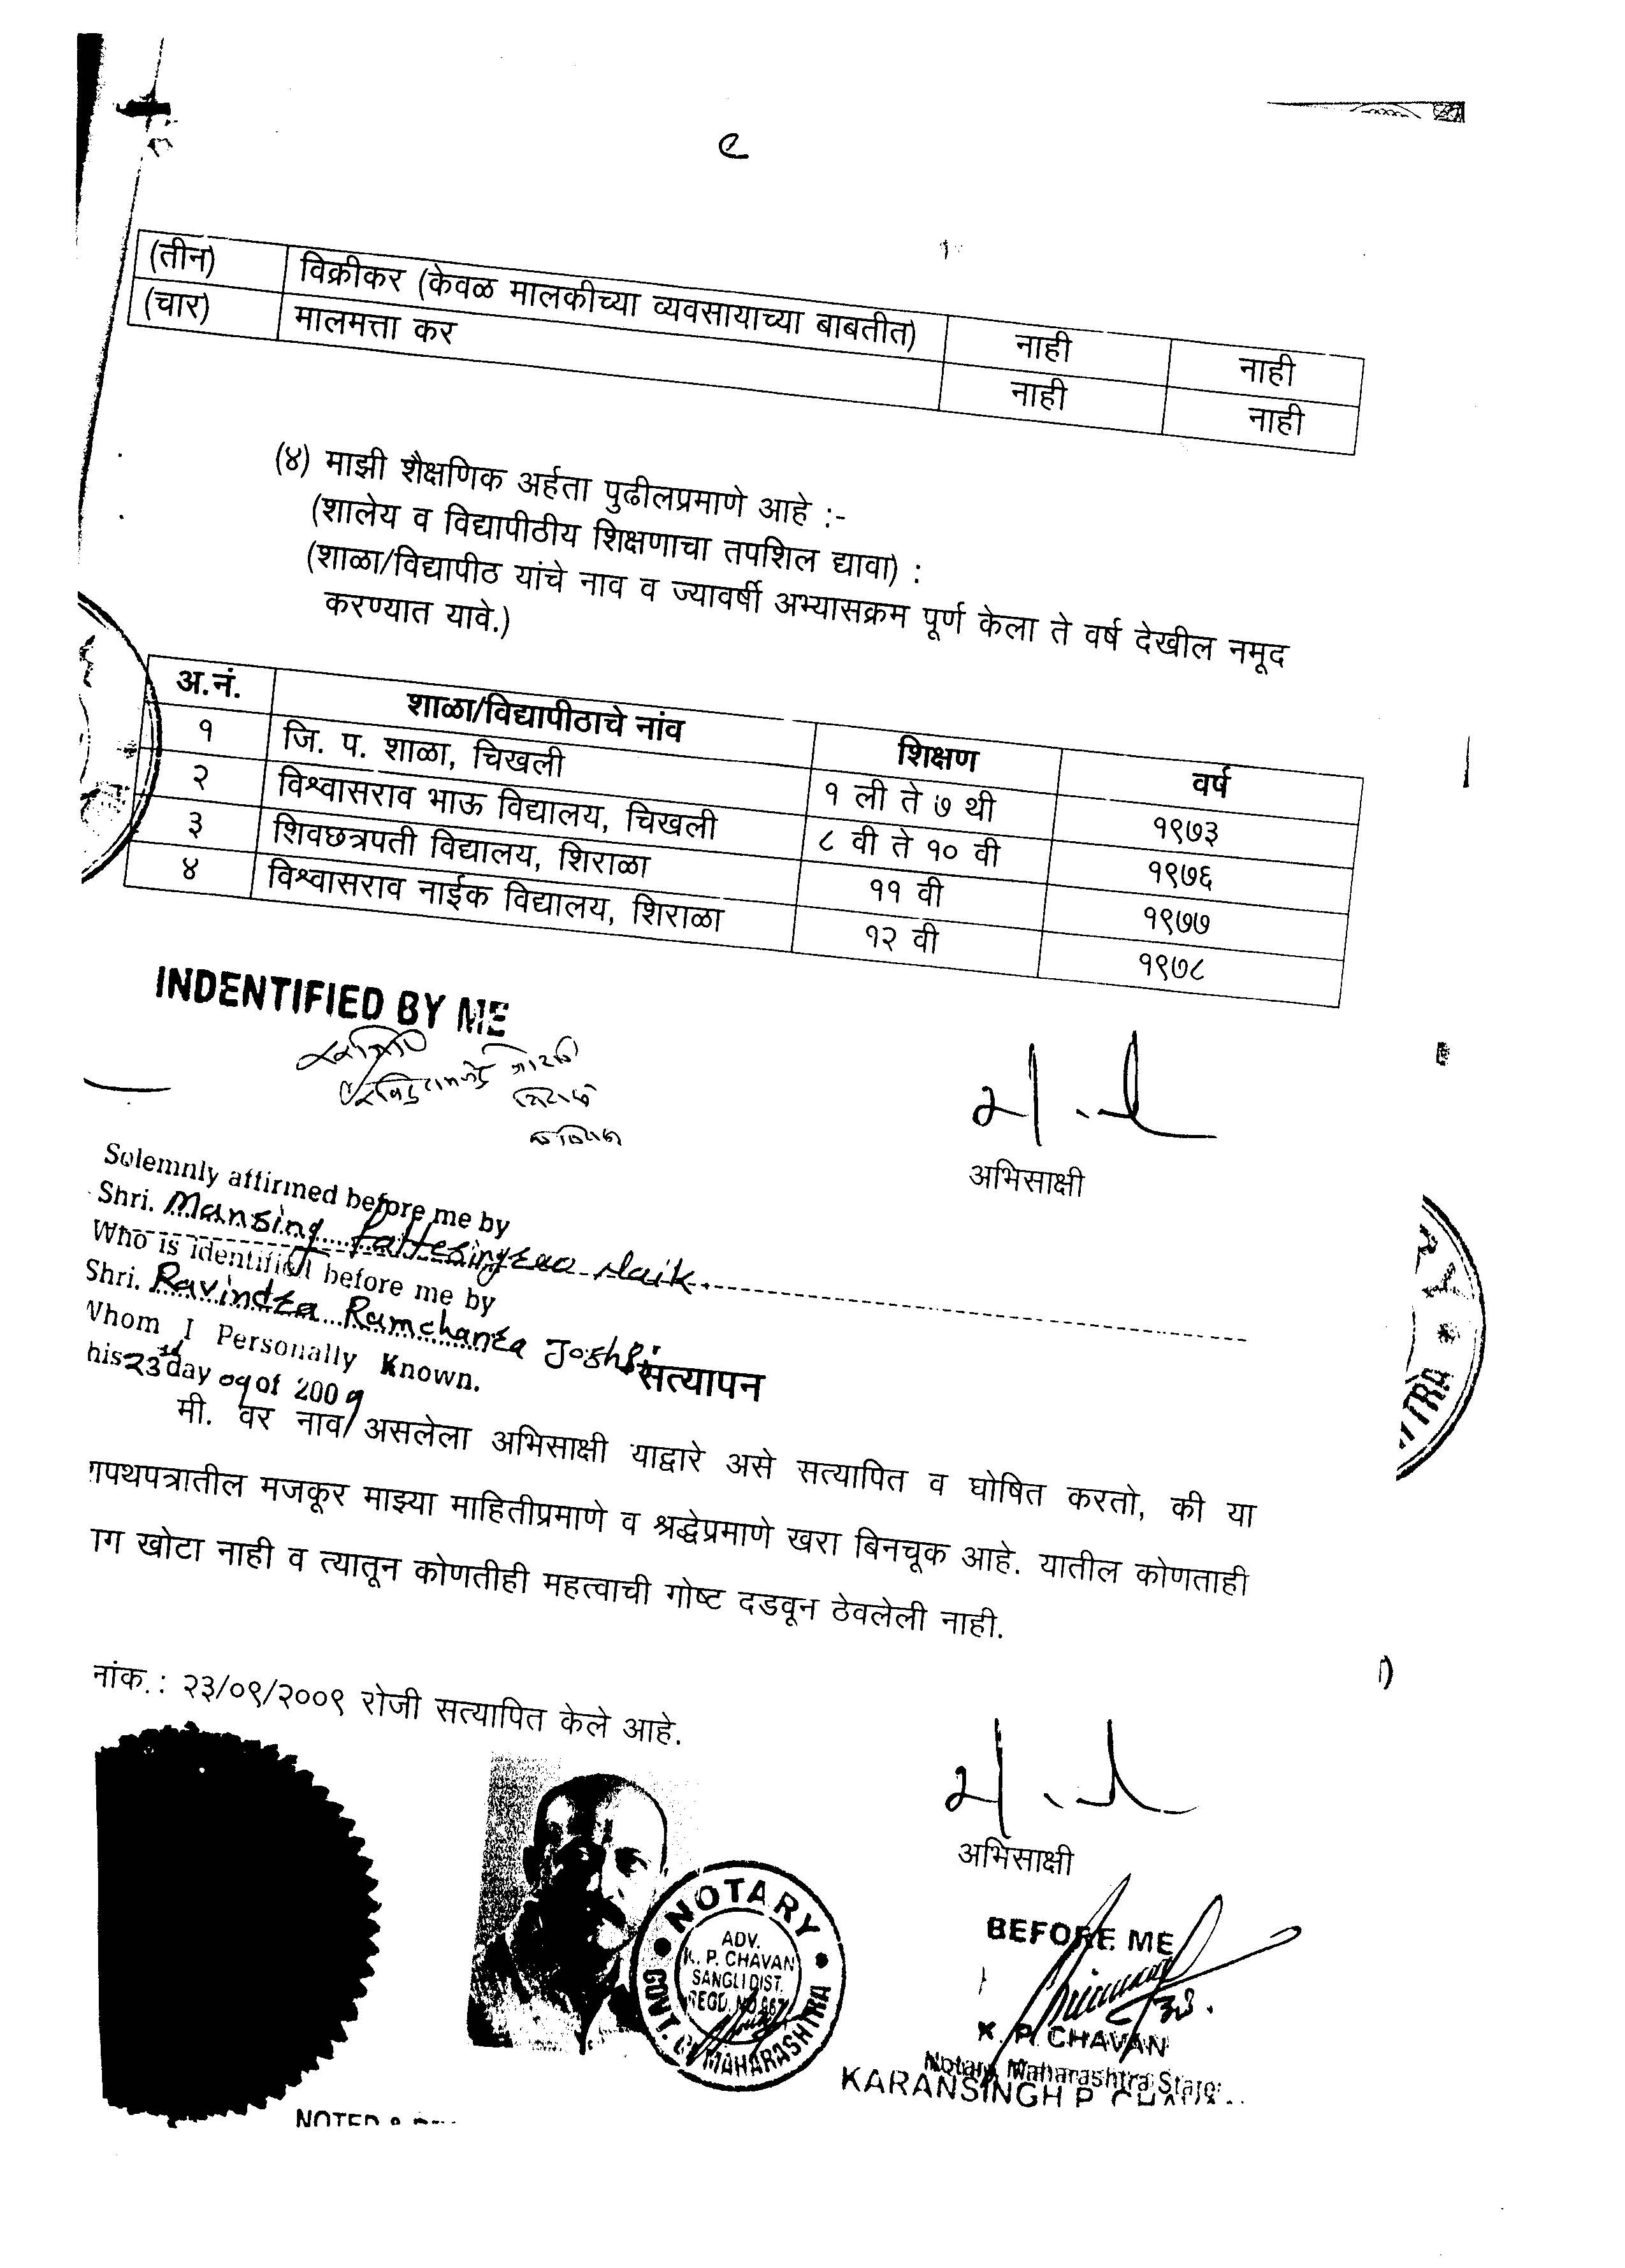 ९
(तीन) विक्रीकर (केवळ मालकीच्या व्यवसायाच्या बाबतीत) नाही नाही
(चार) मालमत्ता कर नाही नाही
(४) माझी शैक्षणिक अर्हता पुढीलप्रमाणे आहे :-
(शालेय व विद्यापीठीय शिक्षणाचा तपशिल द्यावा) :
(शाळा/विद्यापीठ यांचे नाव व ज्यावर्षी अभ्यासक्रम पूर्ण केला ते वर्ष देखील नमूद
करण्यात यावे.)
अ.नं. शाळा/विद्यापीठाचे नांव शिक्षण वर्ष
१ जि. प. शाळा, चिखली १ ली ते ७ थी १९७३
२ विश्वासराव भाऊ विद्यालय, चिखली ८ वी ते १० वी १९७६
३ शिवछत्रपती विद्यालय, शिराळा ११ वी १९७७
४ विश्वासराव नाईक विद्यालय, शिराळा १२ वी १९७८
INDENTIFIED BY ME
अभिसाक्षी
Solemnly affirmed before me by
Shri. Mansing Fattesingrao Naik.
Who is identified before me by
Shri. Ravindra Ramchandra Joshi
Whom I Personally Known.
his 23rd day 09 of 2009
सत्यापन
मी. वर नाव असलेला अभिसाक्षी याद्वारे असे सत्यापित व घोषित करतो, की या
पथपत्रातील मजकूर माझ्या माहितीप्रमाणे व श्रद्धेप्रमाणे खरा बिनचूक आहे. यातील कोणताही
ग खोटा नाही व त्यातून कोणतीही महत्वाची गोष्ट दडवून ठेवलेली नाही.
नांक.: २३/०९/२००९ रोजी सत्यापित केले आहे.
अभिसाक्षी
NOTARY
ADV.
K. P. CHAVAN
SANGLI DIST.
REGD. NO
GOVT. OF MAHARASHTRA
BEFORE ME
K. P. CHAVAN
Notary Maharashtra State
KARANSINGH P
NOTED &